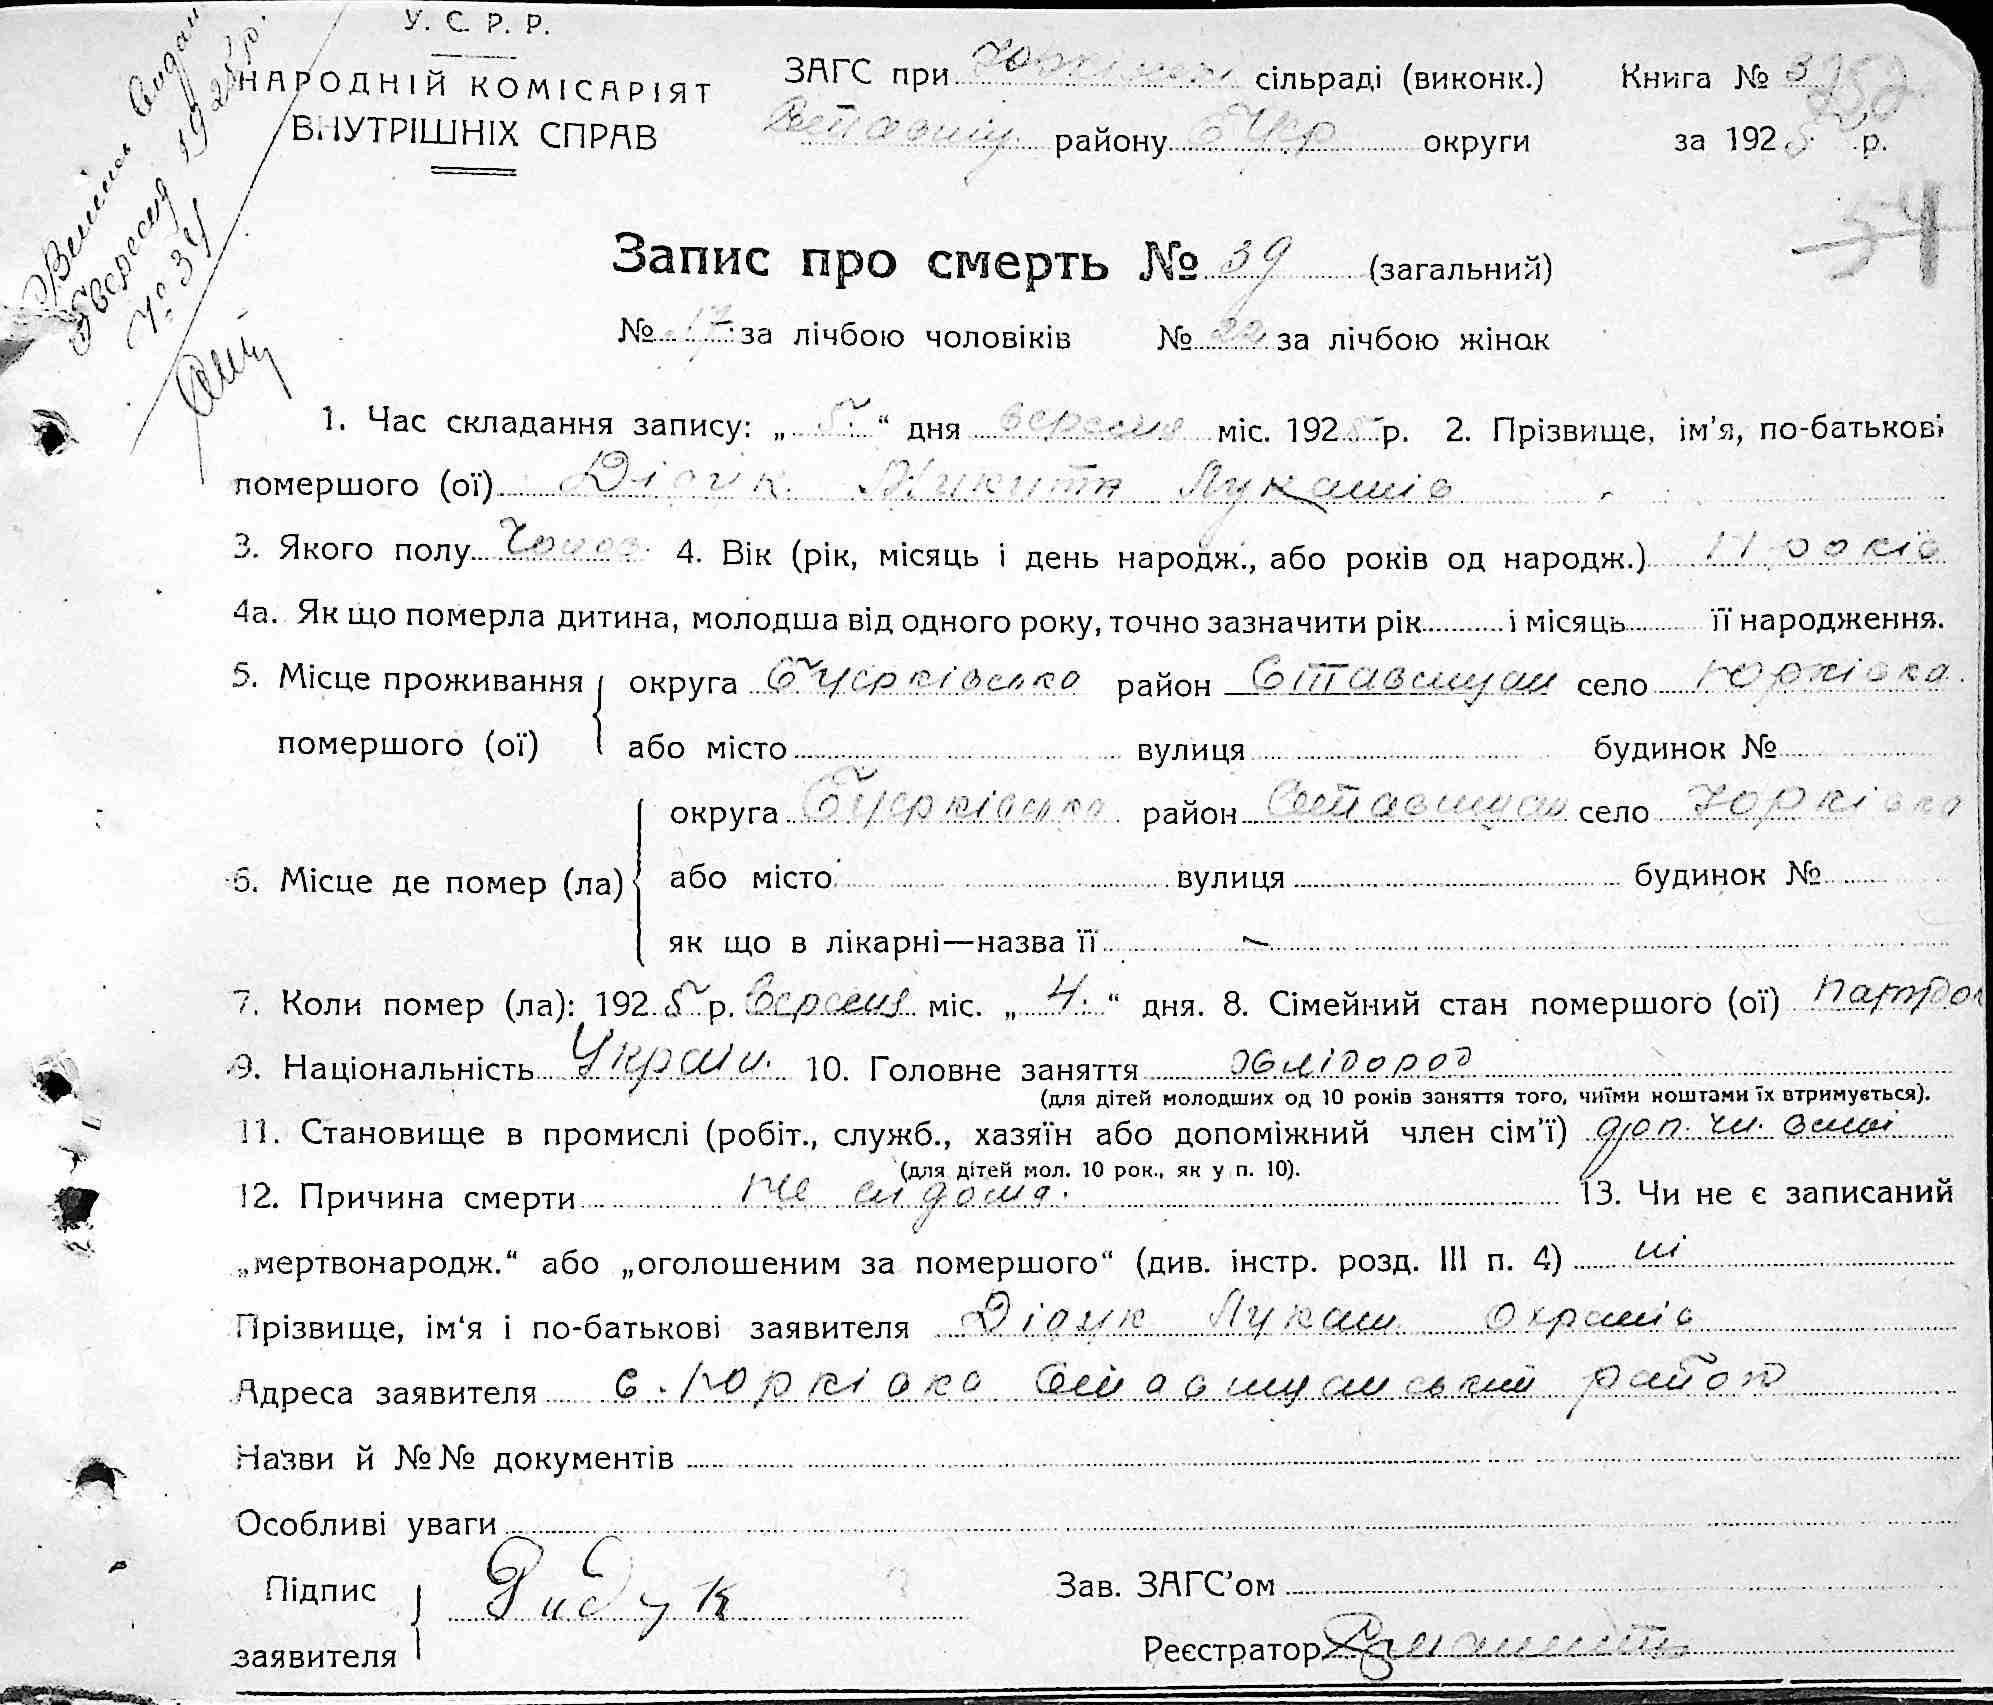 У. С. Р. Р.
НАРОДНІЙ КОМІСАРІЯТ
ВНУТРІШНІХ СПРАВ
Випись видан
5 вересня 1925 р.
№ 34
ЗАГС при Юрківські сільраді (виконк.)
Ставищ району БЦер округи
Книга № 3
252
за 1925 р.
54
Запис про смерть № 39 (загальний)
№ 17 за лічбою чоловіків № 22 за лічбою жінок
1. Час складання запису: „ 5 “ дня вересня міс. 1925 р. 2. Прізвище, ім'я, по-батькові
помершого (ої) Дідук Микита Лукашів
3. Якого полу Чолов. 4. Вік (рік, місяць і день народж., або років од народж.) 11 років
4а. Як що померла дитина, молодша від одного року, точно зазначити рік і місяць її народження.
5. Місце проживання округа БЦерківська район Ставищан село Юрківка
помершого (ої) або місто вулиця будинок №
округа БЦерківська район Ставищан село Юрківка
6. Місце де помер (ла) або місто вулиця будинок №
як що в лікарні—назва її –
7. Коли помер (ла): 1925 р. Вересня міс. „ 4. “ дня. 8. Сімейний стан помершого (ої)
9. Національність Україн. 10. Головне заняття хлібороб
(для дітей молодших од 10 років заняття того, чиїми коштами їх втримується).
11. Становище в промислі (робіт., служб., хазяїн або допоміжний член сім'ї) доп. чл.
(для дітей мол. 10 рок., як у п. 10).
12. Причина смерти не відома. 13. Чи не є записаний
„мертвонародж.“ або „оголошеним за помершого“ (див. інстр. розд. III п. 4) ні
Прізвище, ім'я і по-батькові заявителя Дідук Лукаш
Адреса заявителя с. Юрківка Ставищанський район
Назви й №№ документів
Особливі уваги
Підпис
заявителя Дидук
Зав. ЗАГС'ом
Реєстратор